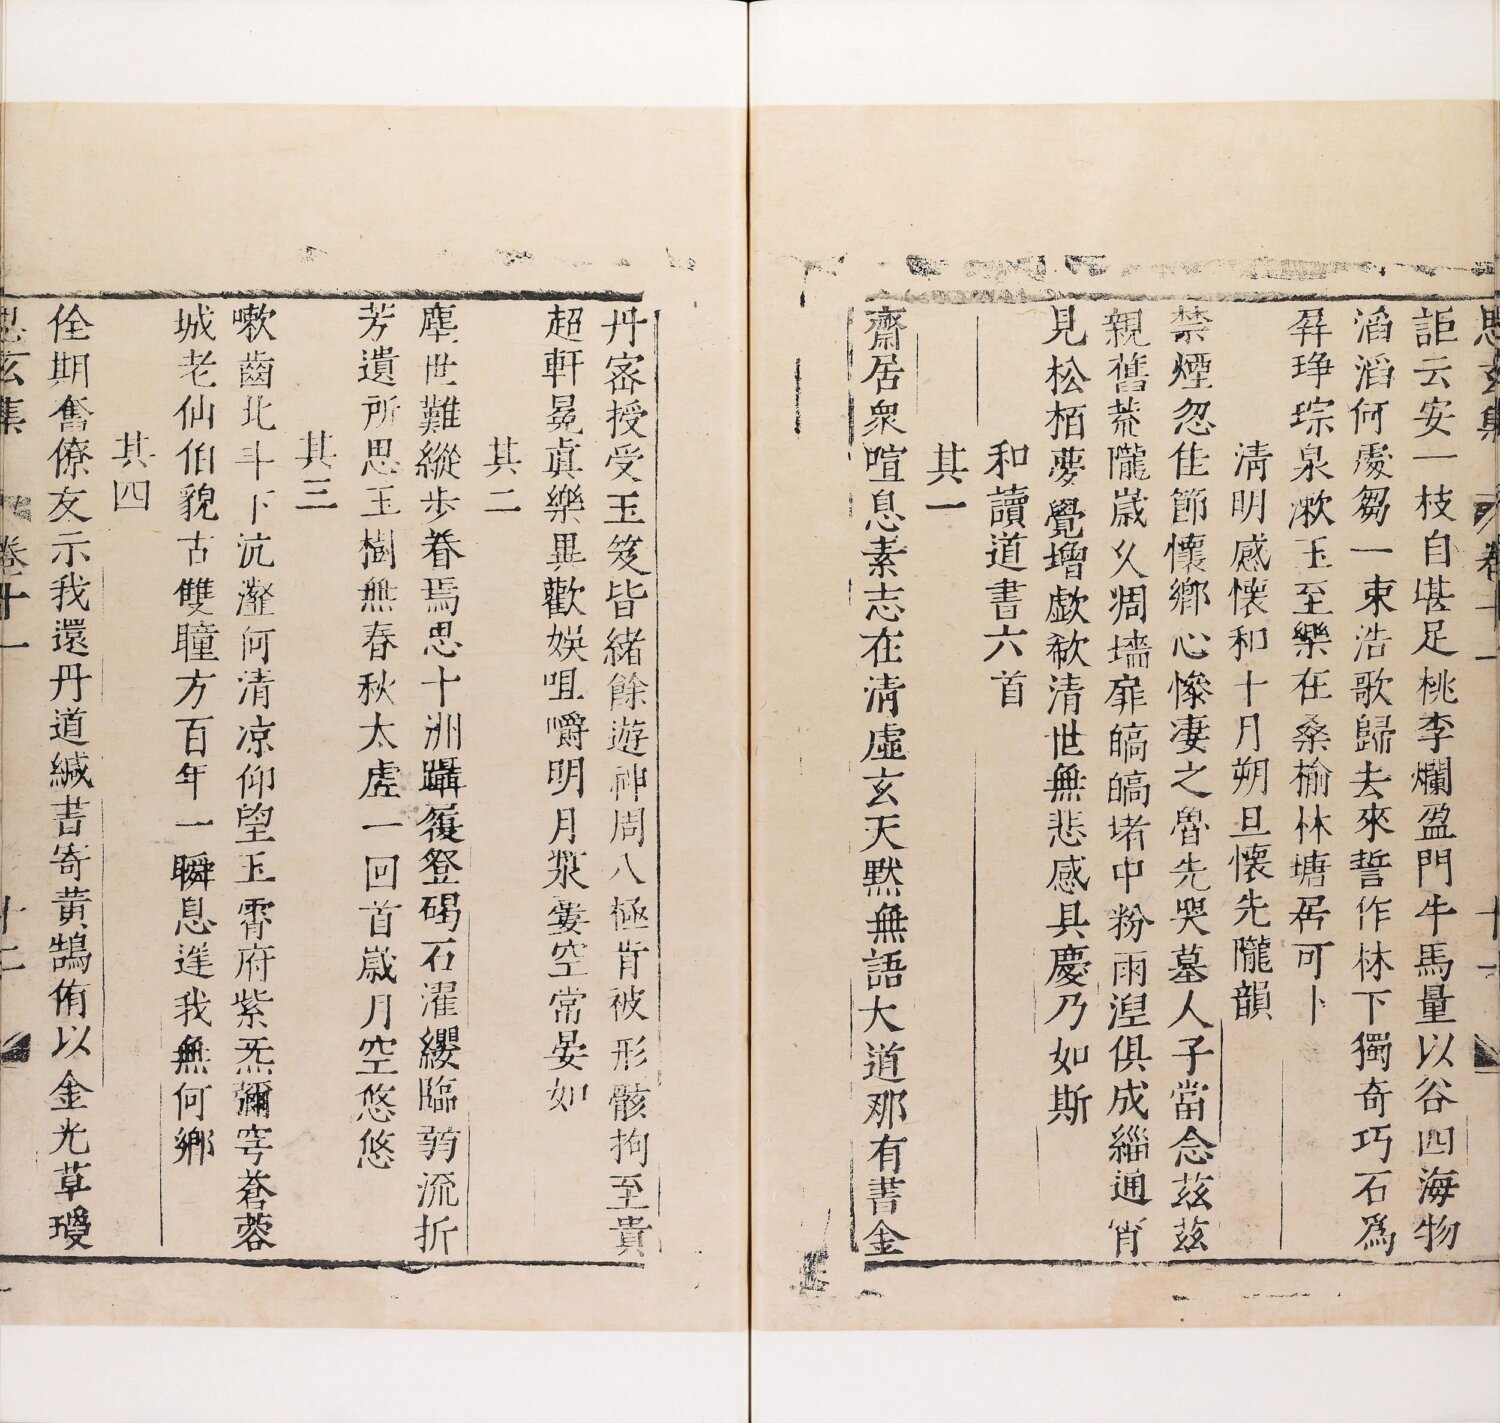 思玄集 卷十一 十一
詎云安一枝自堪足桃李爛盈門牛馬量以谷四海物
滔滔何處芻一束浩歌歸去來誓作林下獨奇巧石為
屏琤琮泉漱玉至樂在桑榆林塘居可卜
清明感懷和十月朔旦懷先隴韻
禁煙忽佳節懷鄉心慘淒之魯先哭墓人子當念茲茲
親舊荒隴歲久凋墻扉皜皜堵中粉雨湼俱成緇通宵
見松栢夢覺增歔欷清世無悲感具慶乃如斯
和讀道書六首
其一
齋居衆喧息素志在清虛玄天默無語大道那有書金
丹密授受玉笈皆緒餘遊神周八極肯被形骸拘至貴
超軒冕真樂異歡娛咀嚼明月漿婁空常晏如
其二
塵世難縱步眷焉思十洲躡履登碣石濯纓臨弱流折
芳遺所思玉樹無春秋太虛一回首歲月空悠悠
其三
嗽齒北斗下沆瀣何清凉仰望玉霄府紫炁彌穹蒼蓉
城老仙伯貌古雙瞳方百年一瞬息逢我無何鄉
其四
佺期奮僚友示我還丹道緘書寄黃鵠侑以金光草璦
思玄集 卷十一 十二